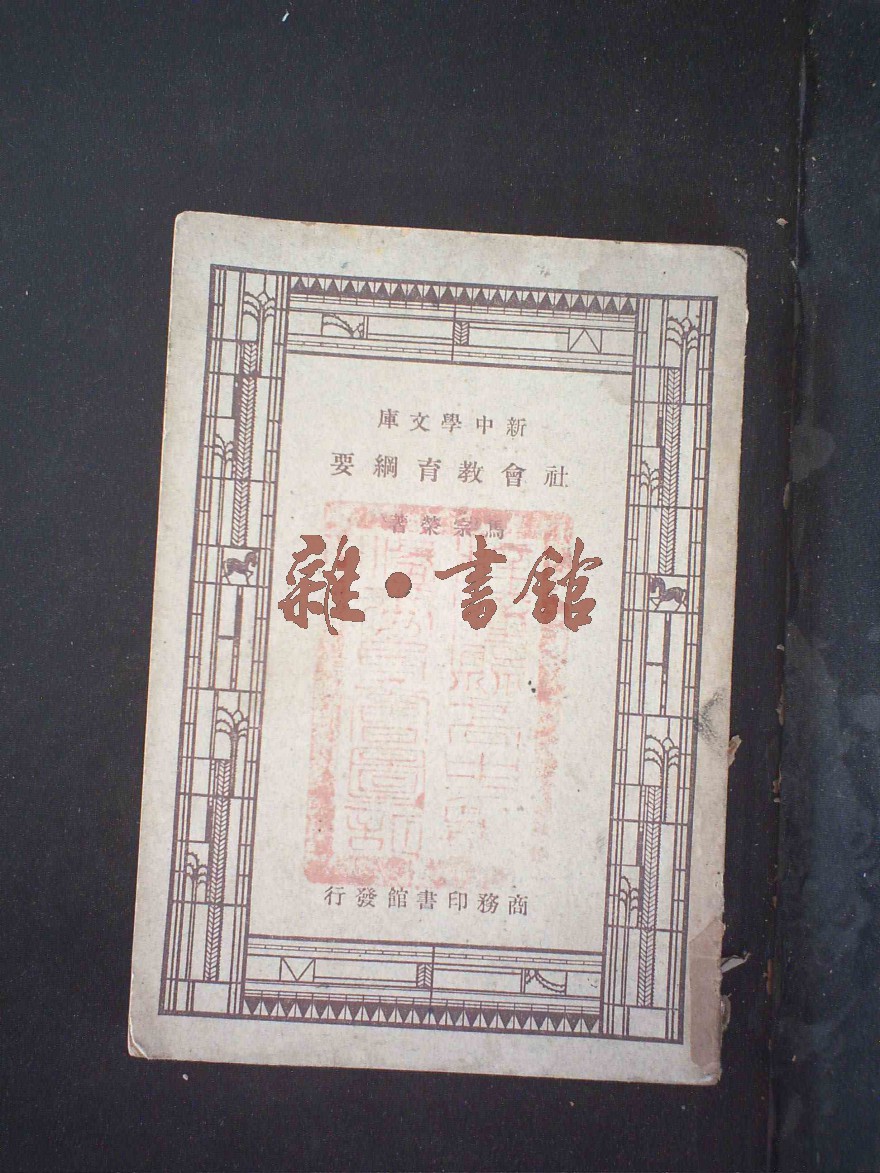 新中學文庫
社會教育綱要
馬宗榮著
雜·書館
商務印書館發行